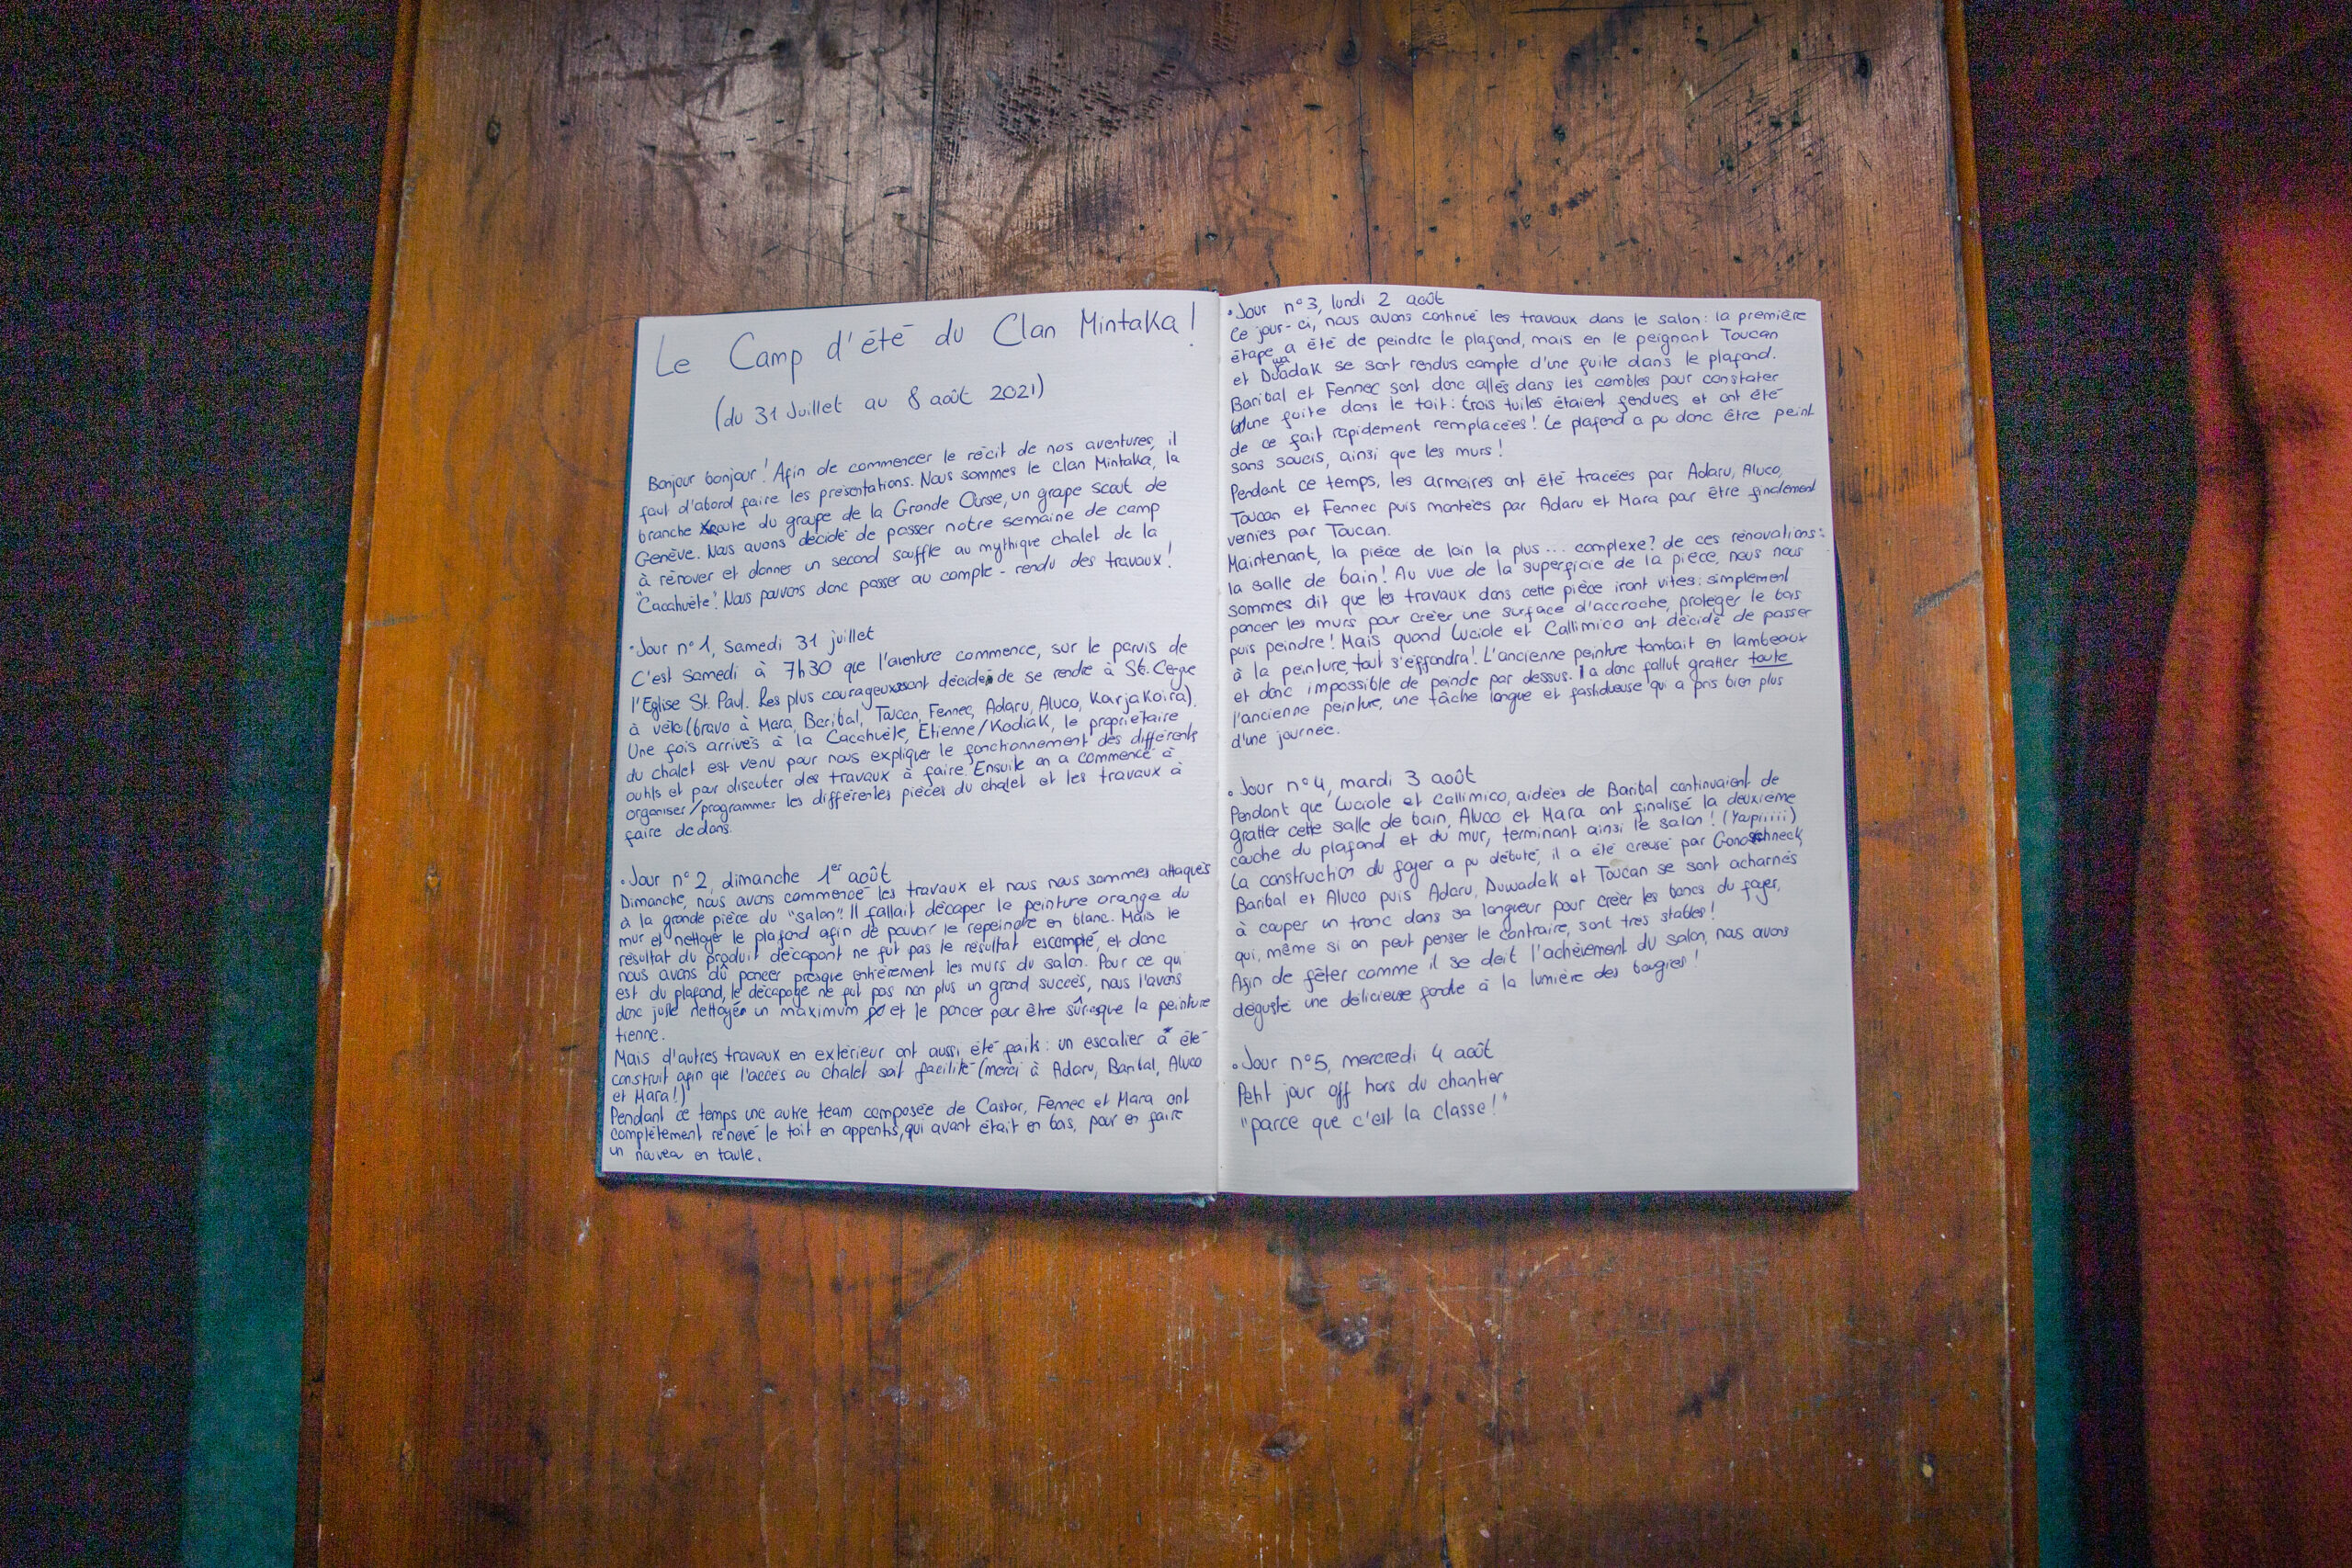 Le Camp d'été du Clan Mintaka !
(du 31 Juillet au 8 août 2021)
Bonjour bonjour ! Afin de commencer le récit de nos aventures, il
faut d'abord faire les présentations. Nous sommes le clan Mintaka, la
branche route du groupe de la Grande Ourse, un groupe scout de
Genève. Nous avons décidé de passer notre semaine de camp
à rénover et donner un second souffle au mythique chalet de la
"Cacahuète". Nous pouvons donc passer au compte-rendu des travaux !
• Jour n°1, samedi 31 juillet
C'est samedi à 7h30 que l'aventure commence, sur le parvis de
l'Eglise St. Paul. Les plus courageux sont décidés de se rendre à St. Cergue
à vélo (bravo à Mara, Baribal, Toucan, Fennec, Adaru, Aluco, Karjakoira).
Une fois arrivés à la Cacahuète, Etienne/Kodiak, le propriétaire
du chalet est venu pour nous expliquer le fonctionnement des différents
outils et pour discuter des travaux à faire. Ensuite on a commencé à
organiser/programmer les différentes pièces du chalet et les travaux à
faire dedans.
• Jour n°2, dimanche 1er août
Dimanche, nous avons commencé les travaux et nous nous sommes attaqués
à la grande pièce du "salon". Il fallait décaper le peinture orange du
mur et nettoyer le plafond afin de pouvoir le repeindre en blanc. Mais le
résultat du produit décapant ne fut pas le résultat escompté, et donc
nous avons dû poncer presque entièrement les murs du salon. Pour ce qui
est du plafond, le décapage ne fut pas non plus un grand succès, nous l'avons
donc juste nettoyer un maximum et le poncer pour être sûr que la peinture
tienne.
Mais d'autres travaux en extérieur ont aussi été faits : un escalier a été
construit afin que l'accès au chalet soit facilité (merci à Adaru, Baribal, Aluco
et Mara !)
Pendant ce temps une autre team composée de Castor, Fennec et Mara ont
complètement rénové le toit en appentis, qui avant était en bas, pour en faire
un nouveau en taule.
• Jour n°3, lundi 2 août
Ce jour-ci, nous avons continué les travaux dans le salon : la première
étape a été de peindre le plafond, mais en le peignant Toucan
et Duwadak se sont rendus compte d'une fuite dans le plafond.
Baribal et Fennec sont donc allés dans les combles pour constater
une fuite dans le toit : trois tuiles étaient fendues et ont été
de ce fait rapidement remplacées ! Le plafond a pu donc être peint
sans soucis, ainsi que les murs !
Pendant ce temps, les armoires ont été tracées par Adaru, Aluco,
Toucan et Fennec puis montées par Adaru et Mara pour être finalement
vernies par Toucan.
Maintenant, la pièce de loin la plus... complexe? de ces rénovations :
la salle de bain ! Au vue de la superficie de la pièce, nous nous
sommes dit que les travaux dans cette pièce iront vites : simplement
poncer les murs pour créer une surface d'accroche, protéger le bas
puis peindre ! Mais quand Luciole et Callimico ont décidé de passer
à la peinture, tout s'effondra ! L'ancienne peinture tombait en lambeaux
et donc impossible de peindre par dessus. Il a donc fallut gratter toute
l'ancienne peinture, une tâche longue et fastidueuse qui a pris bien plus
d'une journée.
• Jour n°4, mardi 3 août
Pendant que Luciole et Callimico, aidées de Baribal continuaient de
gratter cette salle de bain, Aluco et Mara ont finalisé la deuxième
couche du plafond et du mur, terminant ainsi le salon ! (Yapiiiii)
La construction du foyer a pu débuté, il a été creusé par
Baribal et Aluco puis Adaru, Duwadak et Toucan se sont acharnés
à couper un tronc dans sa longueur pour créer les bancs du foyer,
qui, même si on peut penser le contraire, sont très stables !
Afin de fêter comme il se doit l'achèvement du salon, nous avons
dégusté une délicieuse fondue à la lumière des bougies !
• Jour n°5, mercredi 4 août
Petit jour off hors du chantier
"parce que c'est la classe !"